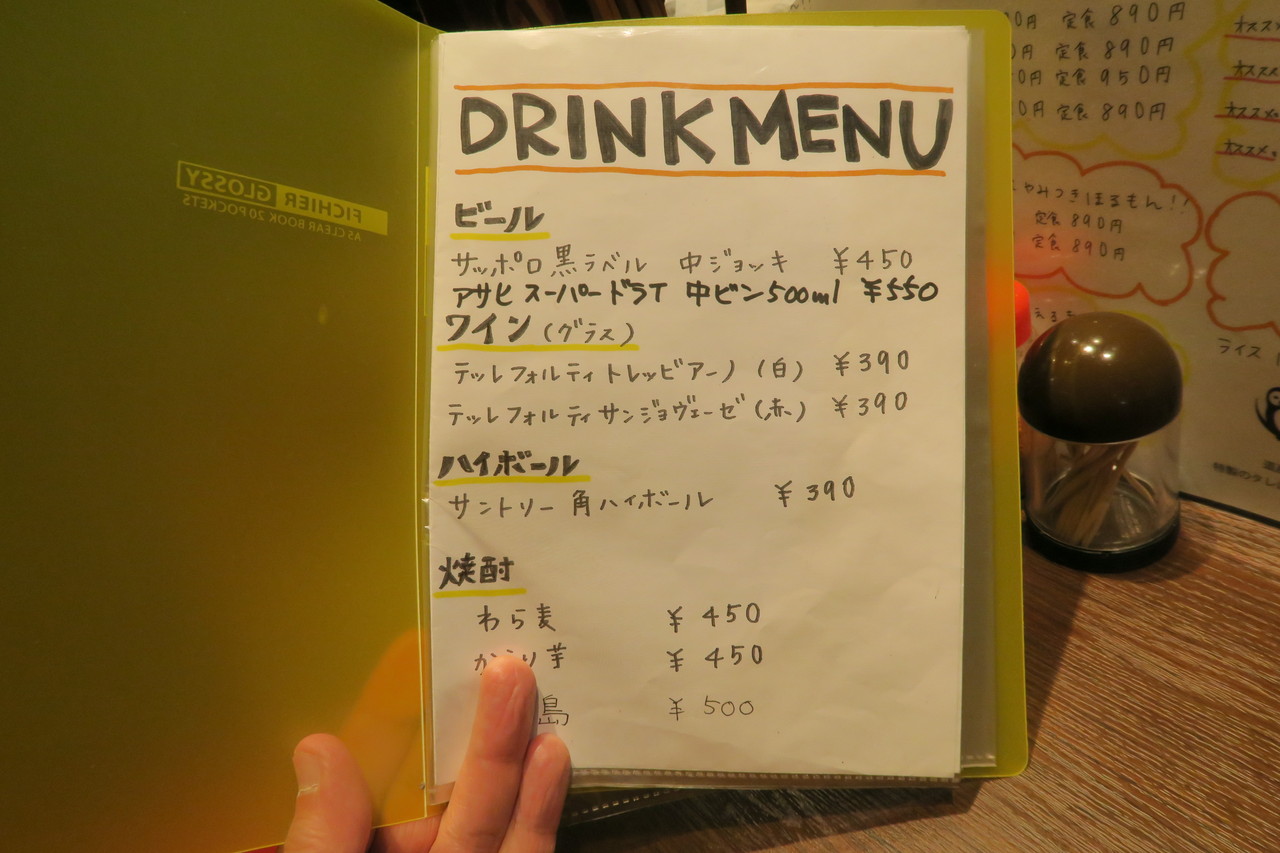 DRINK MENU
ビール
サッポロ黒ラベル 中ジョッキ ¥450
アサヒスーパードライ 中ビン500ml ¥550
ワイン(グラス)
テッレフォルティトレッビアーノ(白) ¥390
テッレフォルティサンジョヴェーゼ(赤) ¥390
ハイボール
サントリー角ハイボール ¥390
焼酎
わら麦 ¥450
芋 ¥450
島 ¥500
FICHIER GLOSSY
A5 CLEAR BOOK 20 POCKETS
0円 定食 890円
0円 定食 890円
0円 定食 950円
0円 定食 890円
オススメ
オススメ
オススメ
オススメ
やみつきほるもん!!
定食 890円
定食 890円
ライス
特製のタレ